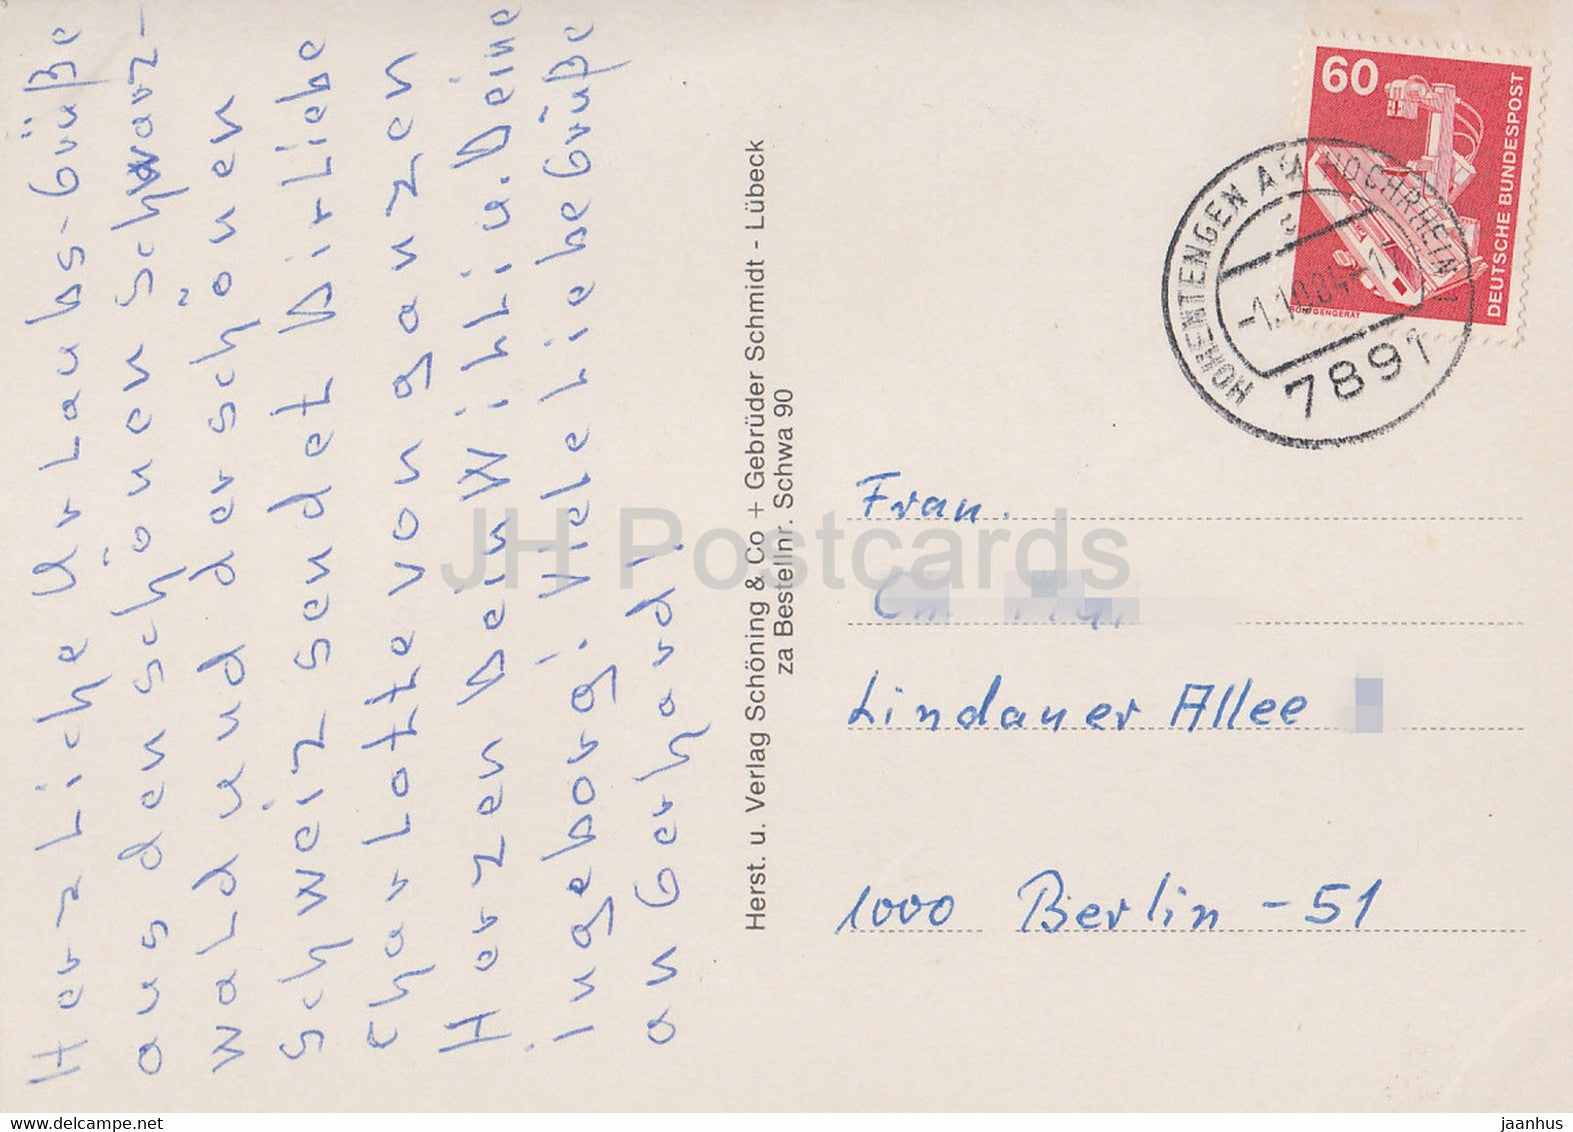 Herzliche Urlaubs-Grüße
aus den schönen Schwarz-
wald und der schönen
Schweiz sendet Dir Liebe
Charlotte von ganzen
Herzen Dein Willi u. Deine
Ingeborg. Viele liebe Grüße
an Gerhard!
Herst. u. Verlag Schöning & Co + Gebrüder Schmidt - Lübeck
za Bestellnr. Schwa 90
60
DEUTSCHE BUNDESPOST
RÖNTGENGERÄT
HOHENTENGEN AM HOCHRHEIN 1
-1.10.84-17
7891
Frau.
Lindauer Allee
1000 Berlin - 51
JH Postcards
www.delcampe.net
jaanhus